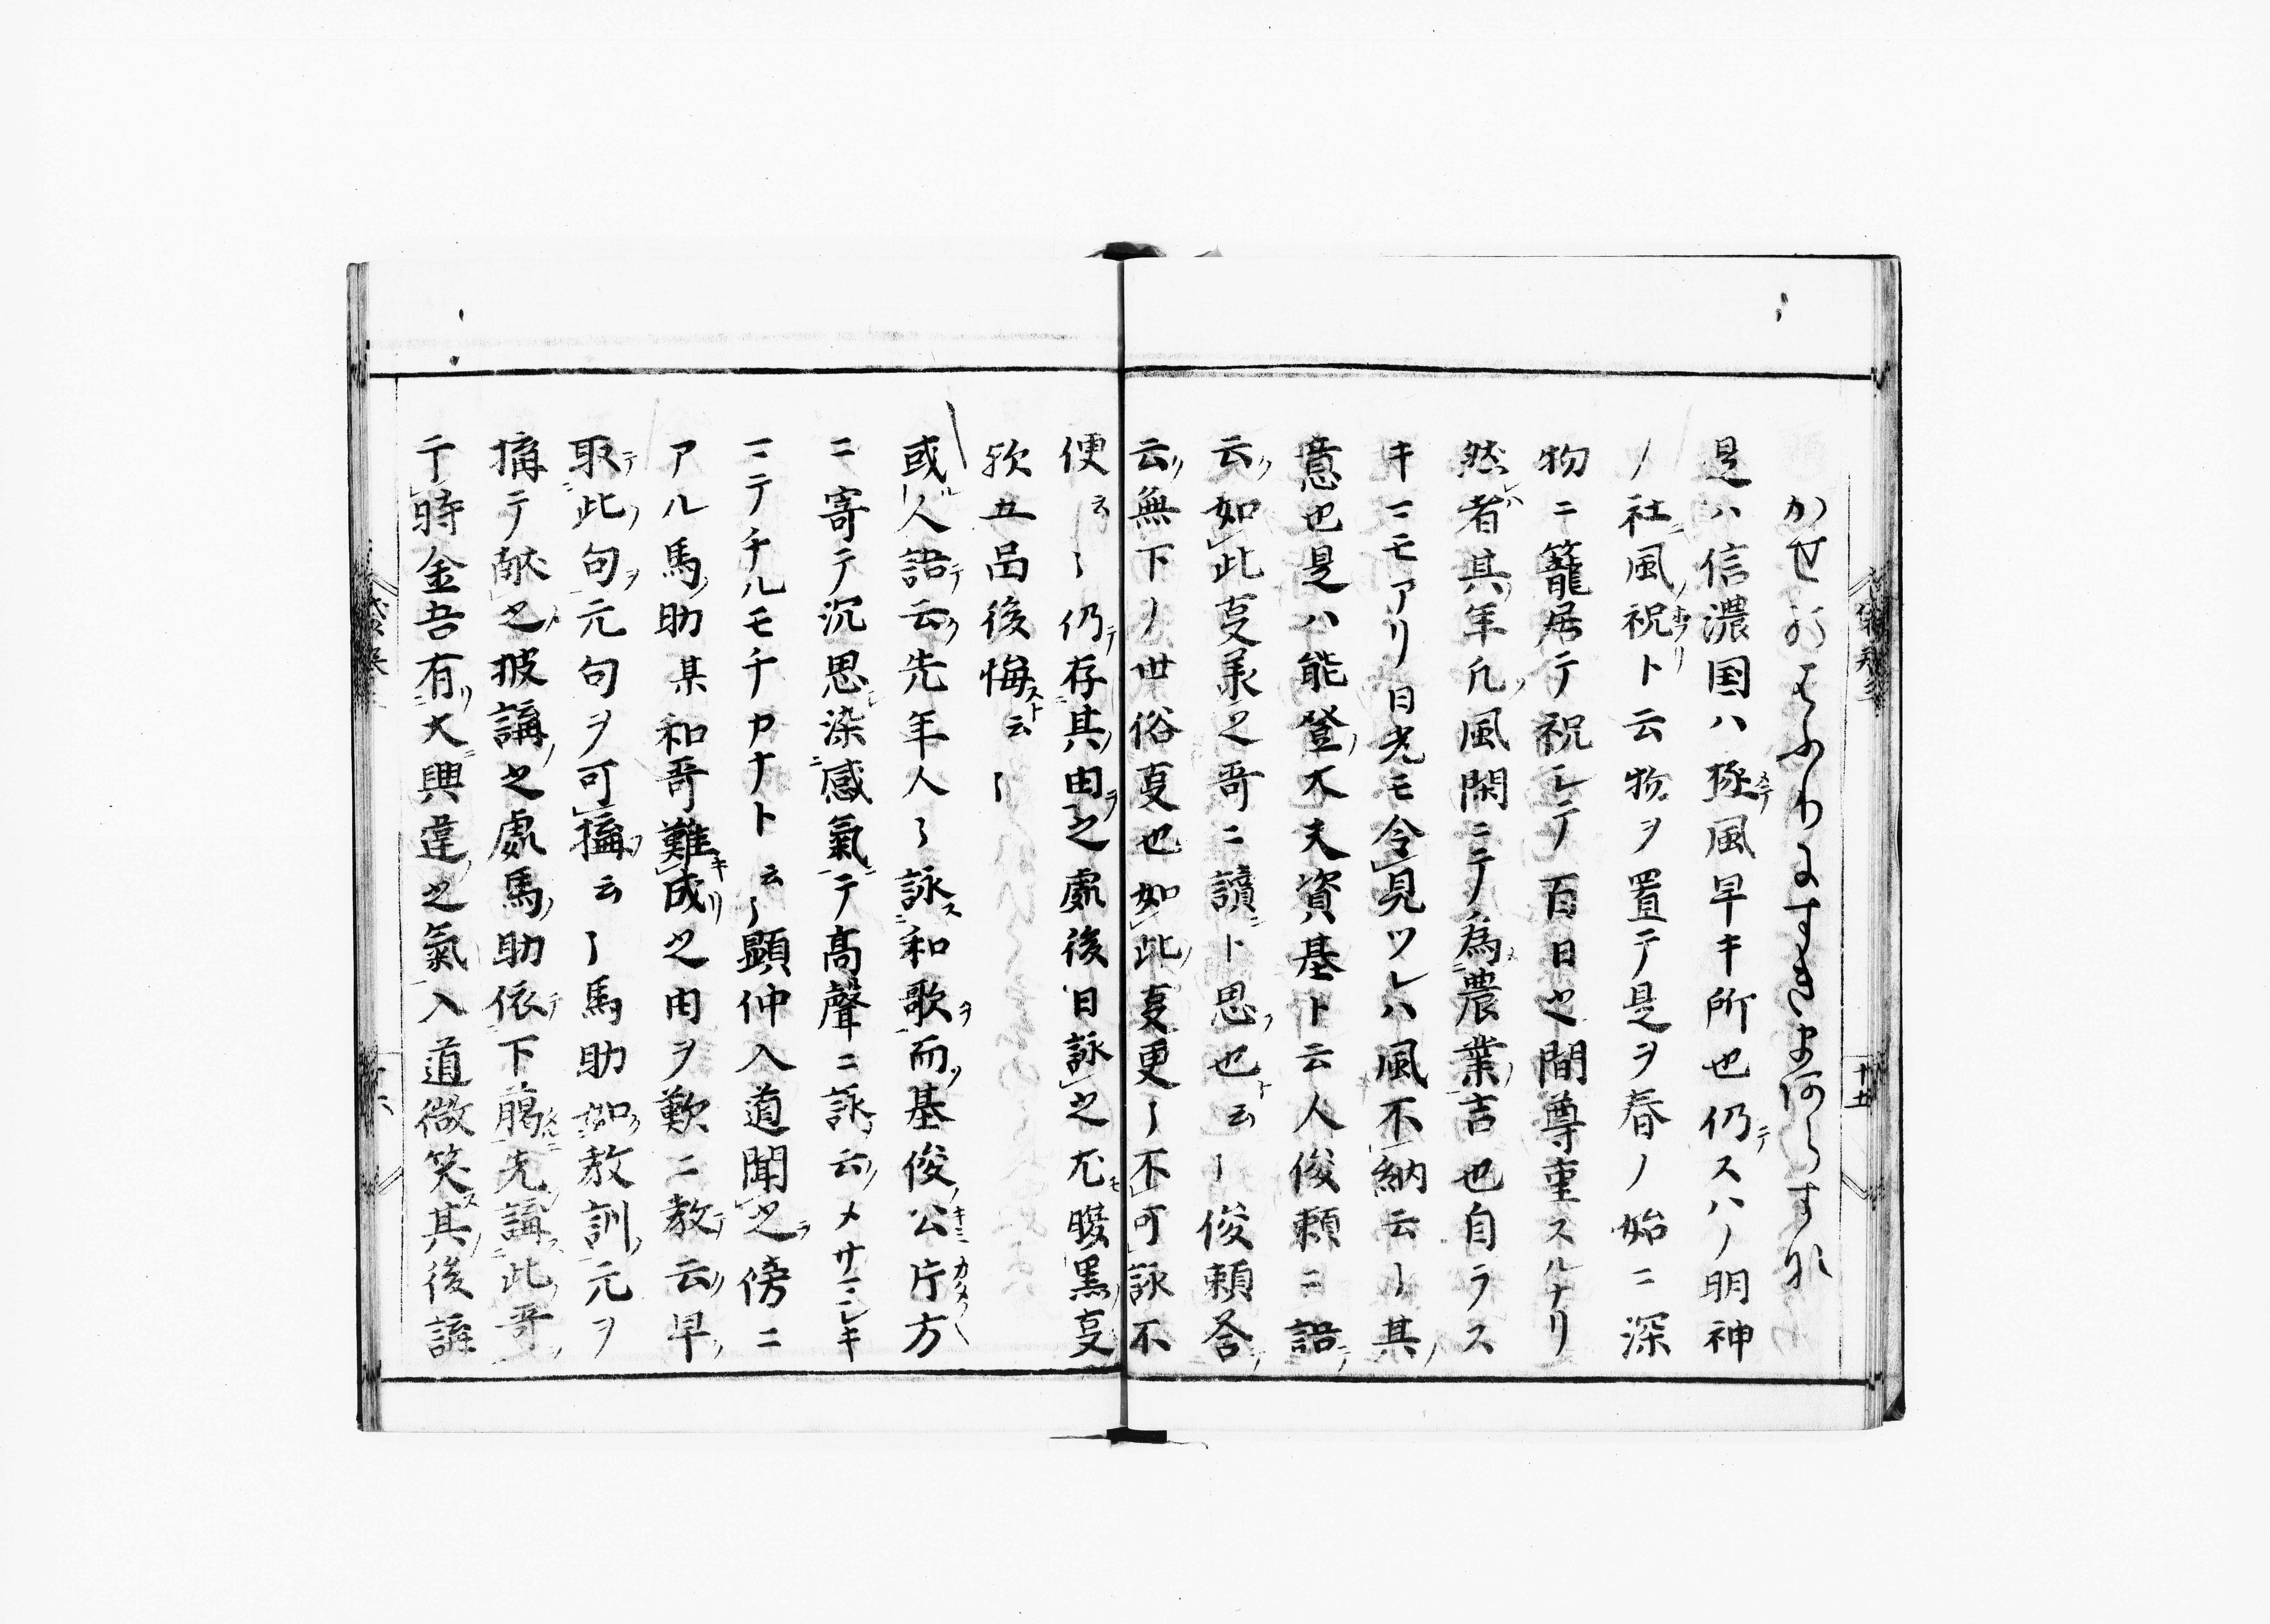 かせのはふりにすきまあらすな
是ハ信濃国ハ極風早キ所也仍スハノ明神
ノ社風祝ト云物ヲ置テ是ヲ春ノ始ニ深
物ニ籠居テ祝シテ百日之間尊重スルナリ
然者其年凡風閑ニテ為農業吉也自ラス
キマモアリ日光モ令見ツレハ風不納云〻其
意也是ハ能登大夫資基ト云人俊頼ニ語
云如此亊承之哥ニ讀ト思也云〻俊頼答
云無下ノ世俗亊也如此亊更〻不可詠不
便云〻仍存其由之處後日詠之尤腹黒亊
欤五品後悔云〻
或人語云先年人〻詠和歌而基俊公片方
ニ寄テ沉思染感氣テ高聲ニ詠云メサマシキ
マテチルモチカナト云〻顕仲入道聞之傍ニ
アル馬助某和哥難成之由ヲ歎ニ教云早
取此句元句ヲ可搆云〻馬助如教訓元ヲ
搆テ献之披講之處馬助依下﨟先講此哥
于時金吾有大興違之氣入道微笑其後講